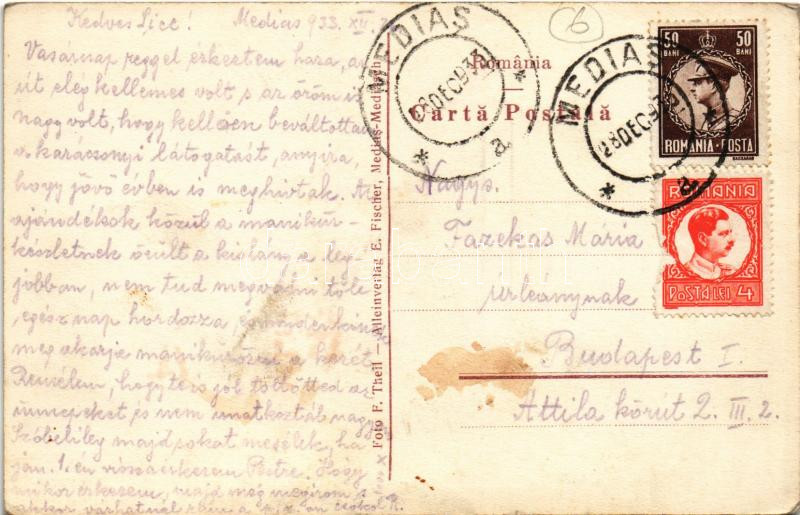 Kedves Lici! Medias 933. XII.
Vasárnap reggel érkeztem haza, az
út elég kellemes volt s az öröm is
nagy volt, hogy kellően beváltottam
a karácsonyi látogatást, annyira,
hogy jövő évben is meghívtak. Az
ajándékok közül a manikűr-
készletnek örült a kislány a leg-
jobban, nem tud megválni tőle
egész nap hordozza, és mindenkinek
meg akarja manikűrözni a kezét
Remélem, hogy te is jól töltötted az
ünnepeket és nem unatkoztál nagyon
Szóbelileg majd sokat mesélek, ha
jan. 1.én vissza érkezem Pestre. Hogy
mikor érkezem, majd még megírom s
akkor várhatnál rám a
Foto F. Theil — Alleinverlag E. Fischer, Medias-Mediasch
România
Cartă Poștală
MEDIAS
28 DEC 933
a
MEDIAS
28 DEC 933
a
50 BANI 50 BANI
ROMANIA·POSTA
ROMANIA
POSTA LEI 4
Nagys.
Fazekas Mária
urleánynak
Budapest I.
Attila körút 2. III. 2.